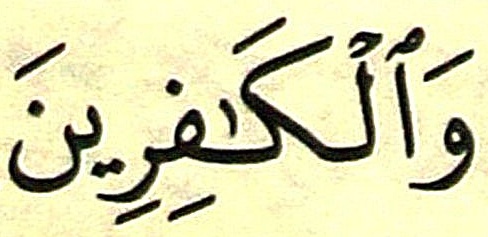 وَٱلْكَـٰفِرِينَ